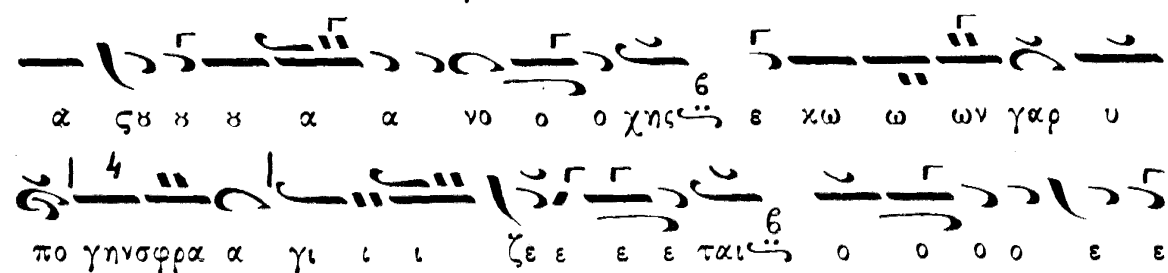 α ϛȣ ȣ ȣ α α νο ο ο χης ε κω ω ων γαρ υ
πο γηνσφρα α γι ι ι ζε ε ε ε ται ο ο ο ο ε ε